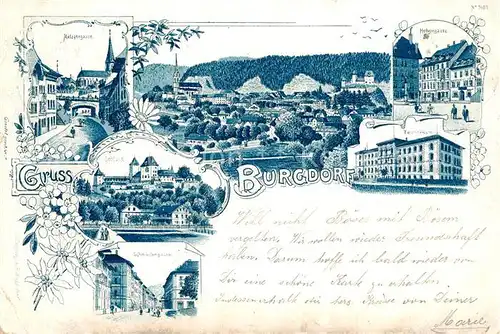 Metzgergasse
Hohengasse
Schloss
Gruss
Burgdorf
Schmiedengasse
Will nicht Böses mit Bösem
vergelten. Wir wollen wieder Freundschaft
haben. Darum hoffe ich bald wieder von
Dir eine schöne Karte zu erhalten
Indessen erhalt die herz. Grüsse von Deiner
Marie